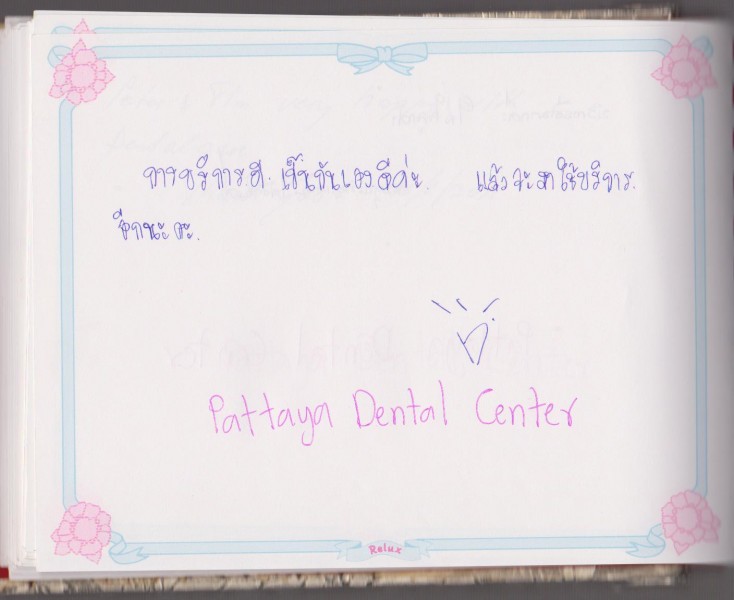 การบริการดี. เป็นกันเองดีค่ะ. แล้วจะมาใช้บริการ.
อีกนะคะ.
Pattaya Dental Center
Relux